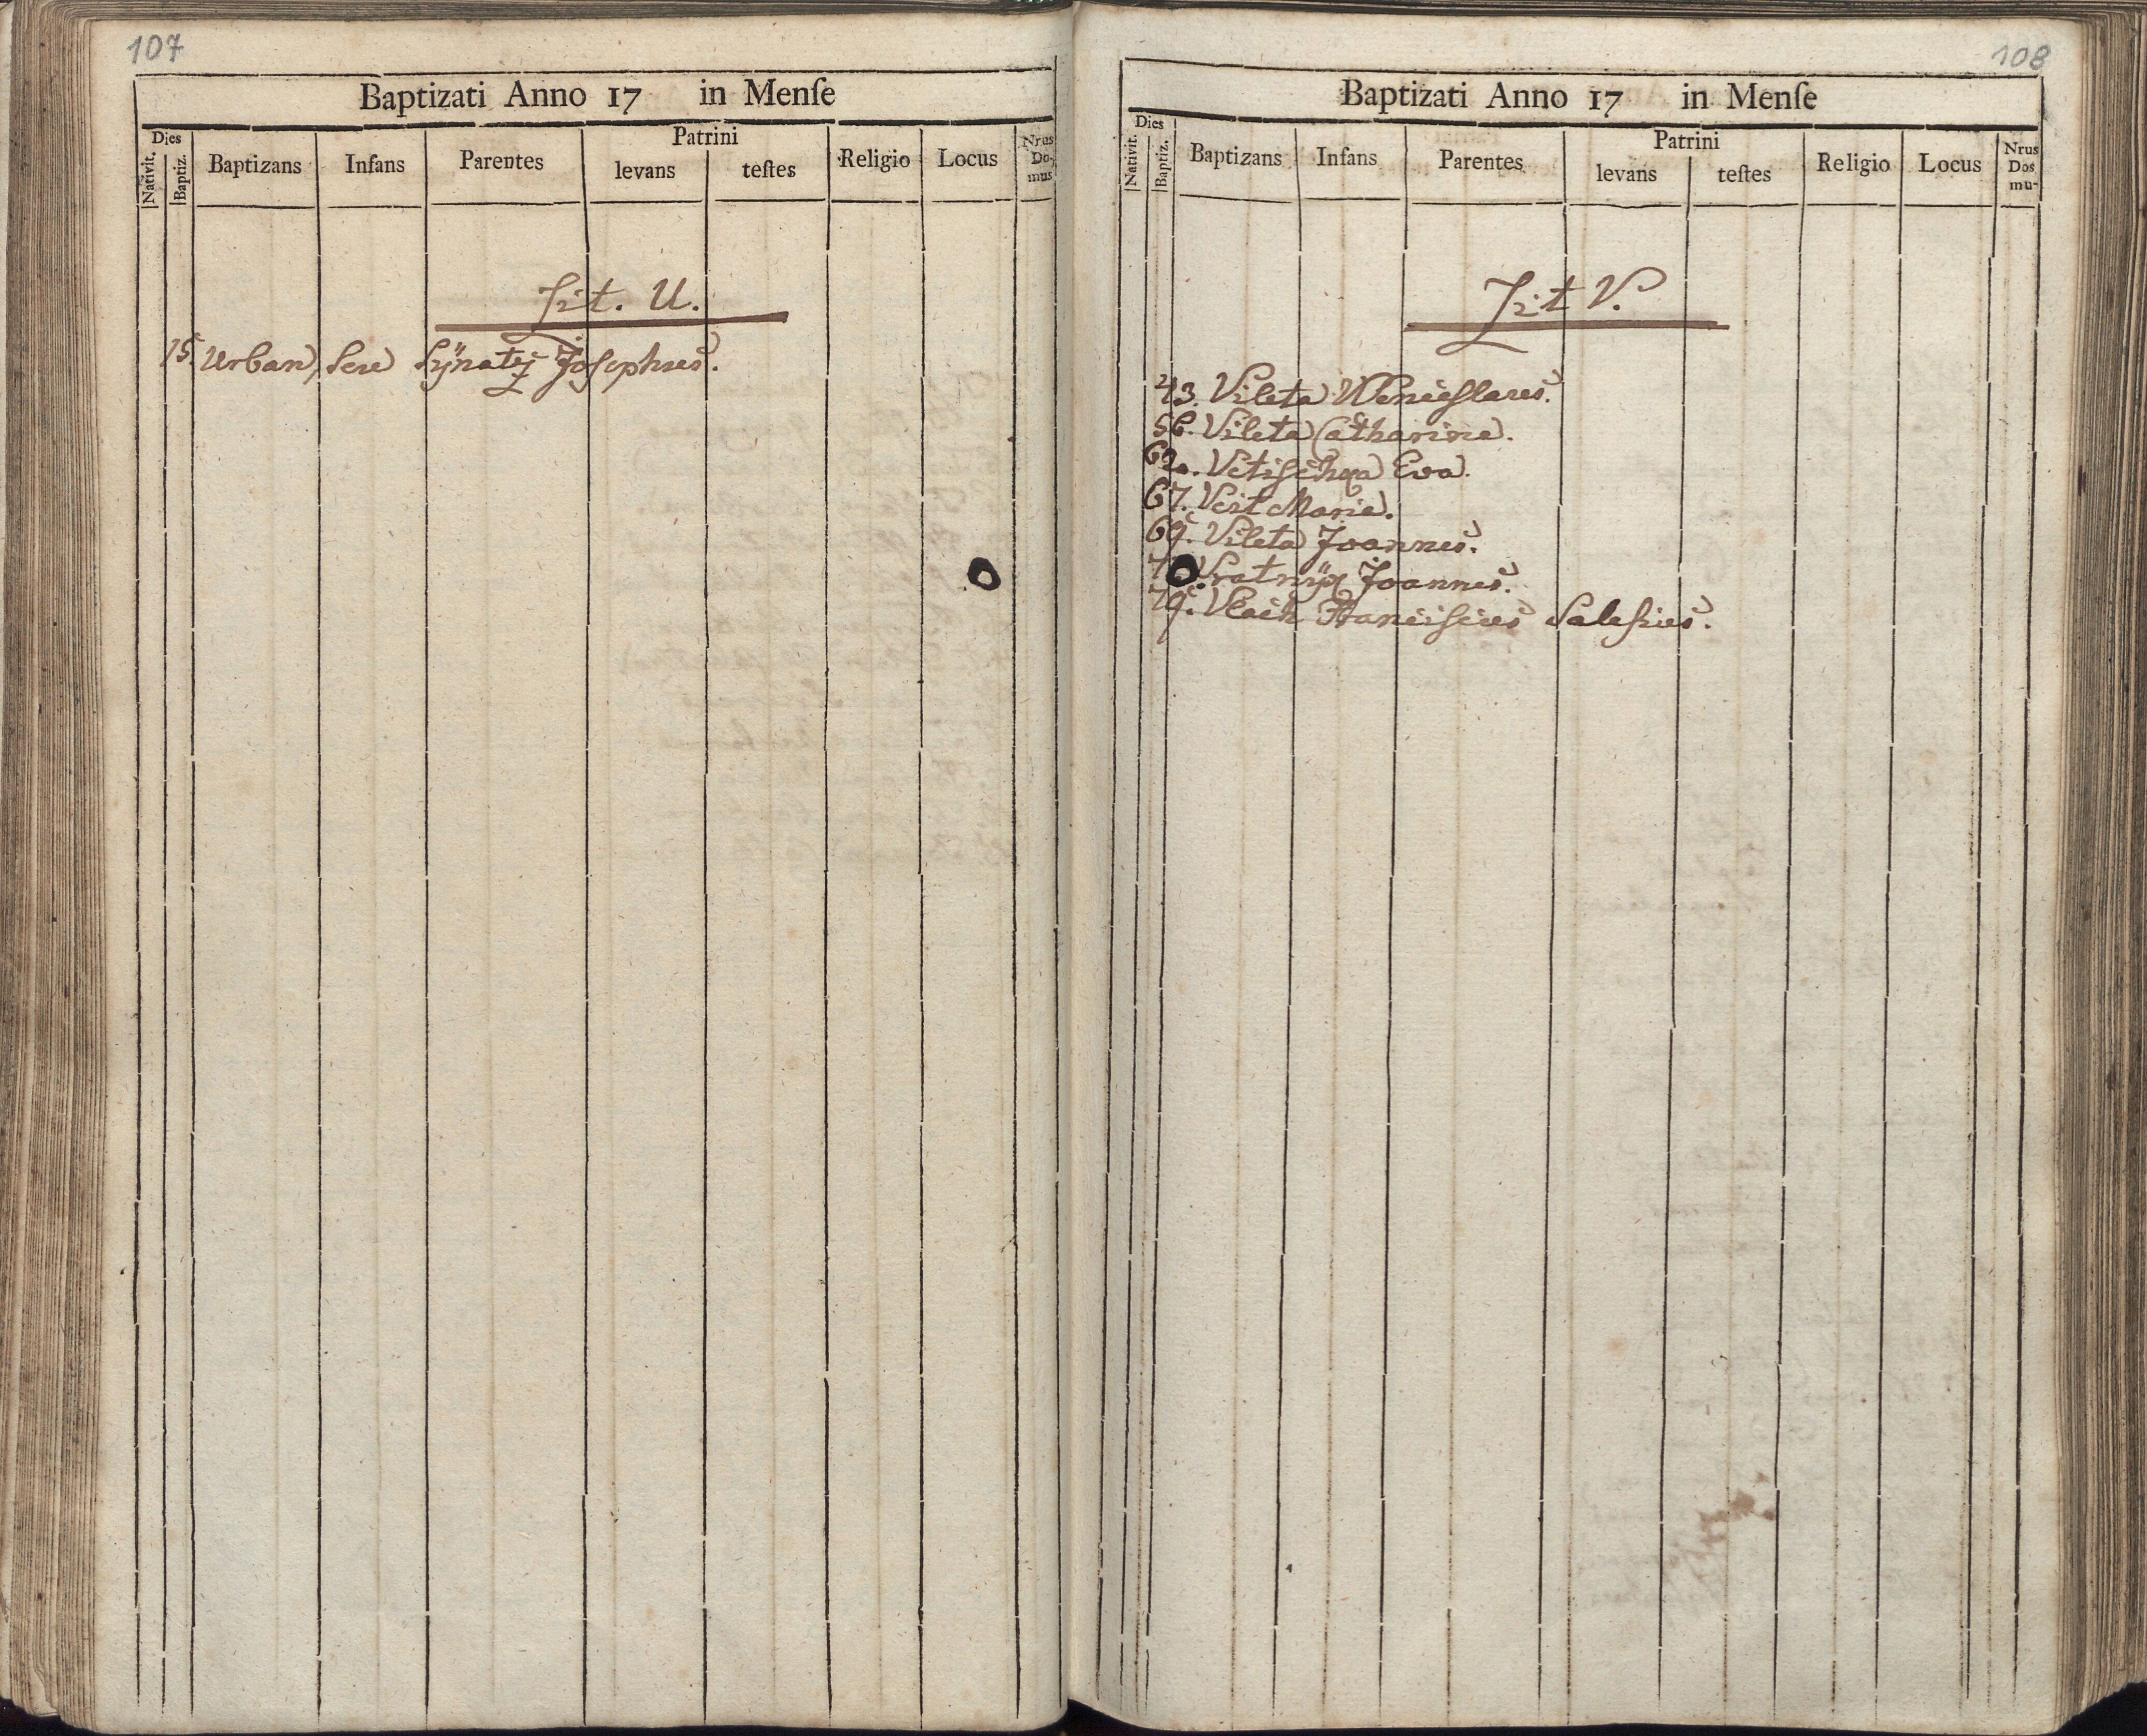 107
Baptizati Anno 17 in Menſe
Dies
Nativit.
Baptiz.
Baptizans
Infans
Parentes
Patrini
levans
teſtes
Religio
Locus
Nrus
Do,
mus
Lit. U.
15. Urban, Josephus.
108
Baptizati Anno 17 in Menſe
Dies
Nativit.
Baptiz.
Baptizans
Infans
Parentes
Patrini
levans
teſtes
Religio
Locus
Nrus
Dos
mu-
Lit V.
43. Vileta Wenceslaus.
56. Vileta Catharina.
Eva.
67. Veit Maria.
69. Vileta Joannes.
Joannes.
79. Vlach Franciscus Salesius.